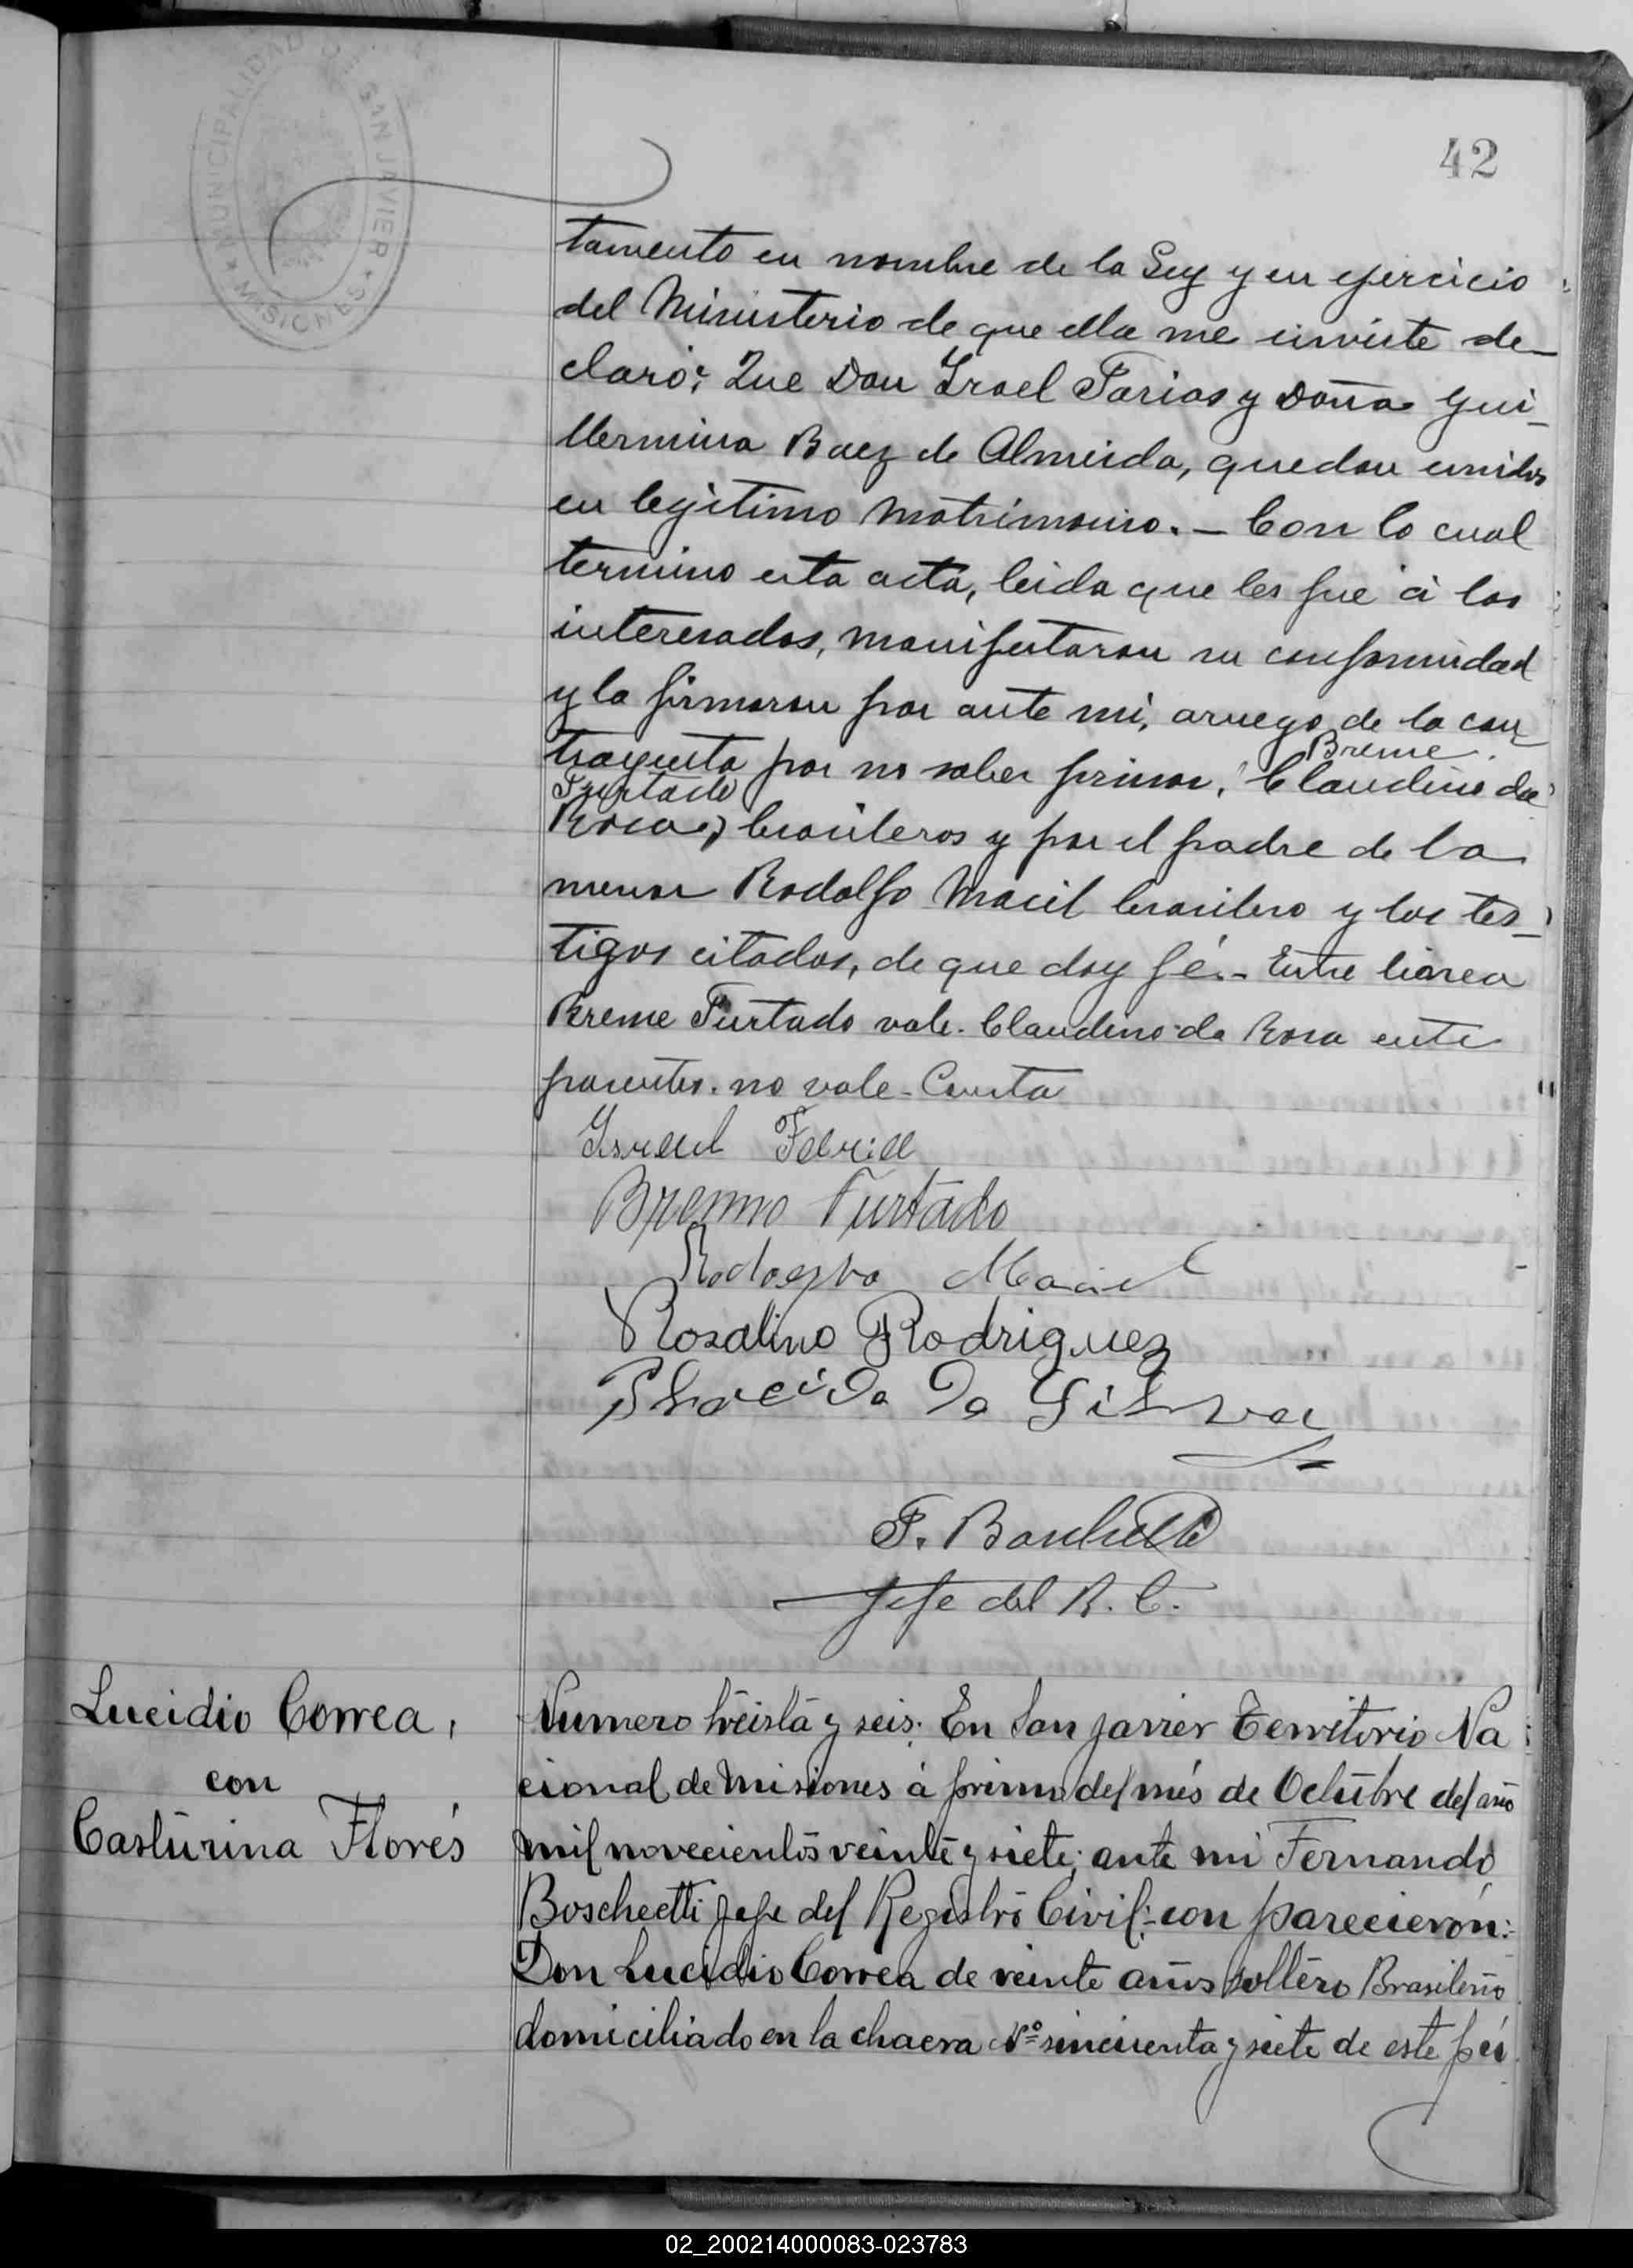 MUNICIPALIDAD DE SAN JAVIER
★ MISIONES ★
42
tamento en nombre de la Ley y en ejercicio
del Ministerio de que ella me inviste de-
claro: Que Don Israel Farias y Doña Gui-
llermina Baez de Almeida, quedan unidos
en legitimo matrimonio. – Con lo cual
termino esta acta, leida que les fué á los
interesados, manifestaron su conformidad
y la firmaron por ante mi, aruego de la con-
Breme
trayente por no saber firmar, (Claudino da
Furtado
Rosa) brasileros y por el padre de la
menor Rodolfo Maciel brasilero y los tes-
tigos citados, de que doy fé.- Entre linea
Breme Furtado vale. Claudino da Rosa entre
parentes. no vale- Consta
Israel
Bremno Furtado
Maciel
Rosalino Rodriguez
da Silva
F. Boschetti
Jefe del R. C.
Lucidio Correa,
con
Casturina Florés
Numero treista y seis. En San Javier Territorio Na
cional de Misiones á primo del més de Octubre del año
mil novecientos veinte y siete; ante mi Fernando
Boschetti Jefe del Registro Civil: con parecierón:
Don Lucidio Correa de veinte años soltero Brasileño
domiciliado en la chacra Nº sincuenta y siete de este
02_200214000083-023783